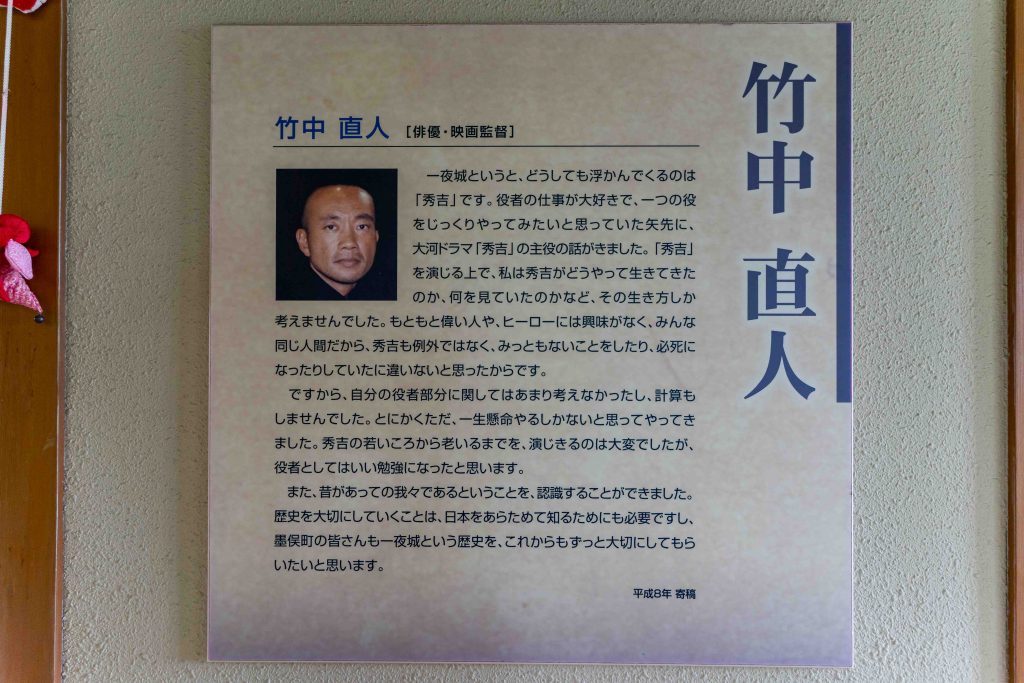 竹中 直人
竹中 直人 [俳優・映画監督]
一夜城というと、どうしても浮かんでくるのは
「秀吉」です。役者の仕事が大好きで、一つの役
をじっくりやってみたいと思っていた矢先に、
大河ドラマ「秀吉」の主役の話がきました。「秀吉」
を演じる上で、私は秀吉がどうやって生きてきた
のか、何を見ていたのかなど、その生き方しか
考えませんでした。もともと偉い人や、ヒーローには興味がなく、みんな
同じ人間だから、秀吉も例外ではなく、みっともないことをしたり、必死に
なったりしていたに違いないと思ったからです。
ですから、自分の役者部分に関してはあまり考えなかったし、計算も
しませんでした。とにかくただ、一生懸命やるしかないと思ってやってき
ました。秀吉の若いころから老いるまでを、演じきるのは大変でしたが、
役者としてはいい勉強になったと思います。
また、昔があっての我々であるということを、認識することができました。
歴史を大切にしていくことは、日本をあらためて知るためにも必要ですし、
墨俣町の皆さんも一夜城という歴史を、これからもずっと大切にしてもら
いたいと思います。
平成8年 寄稿